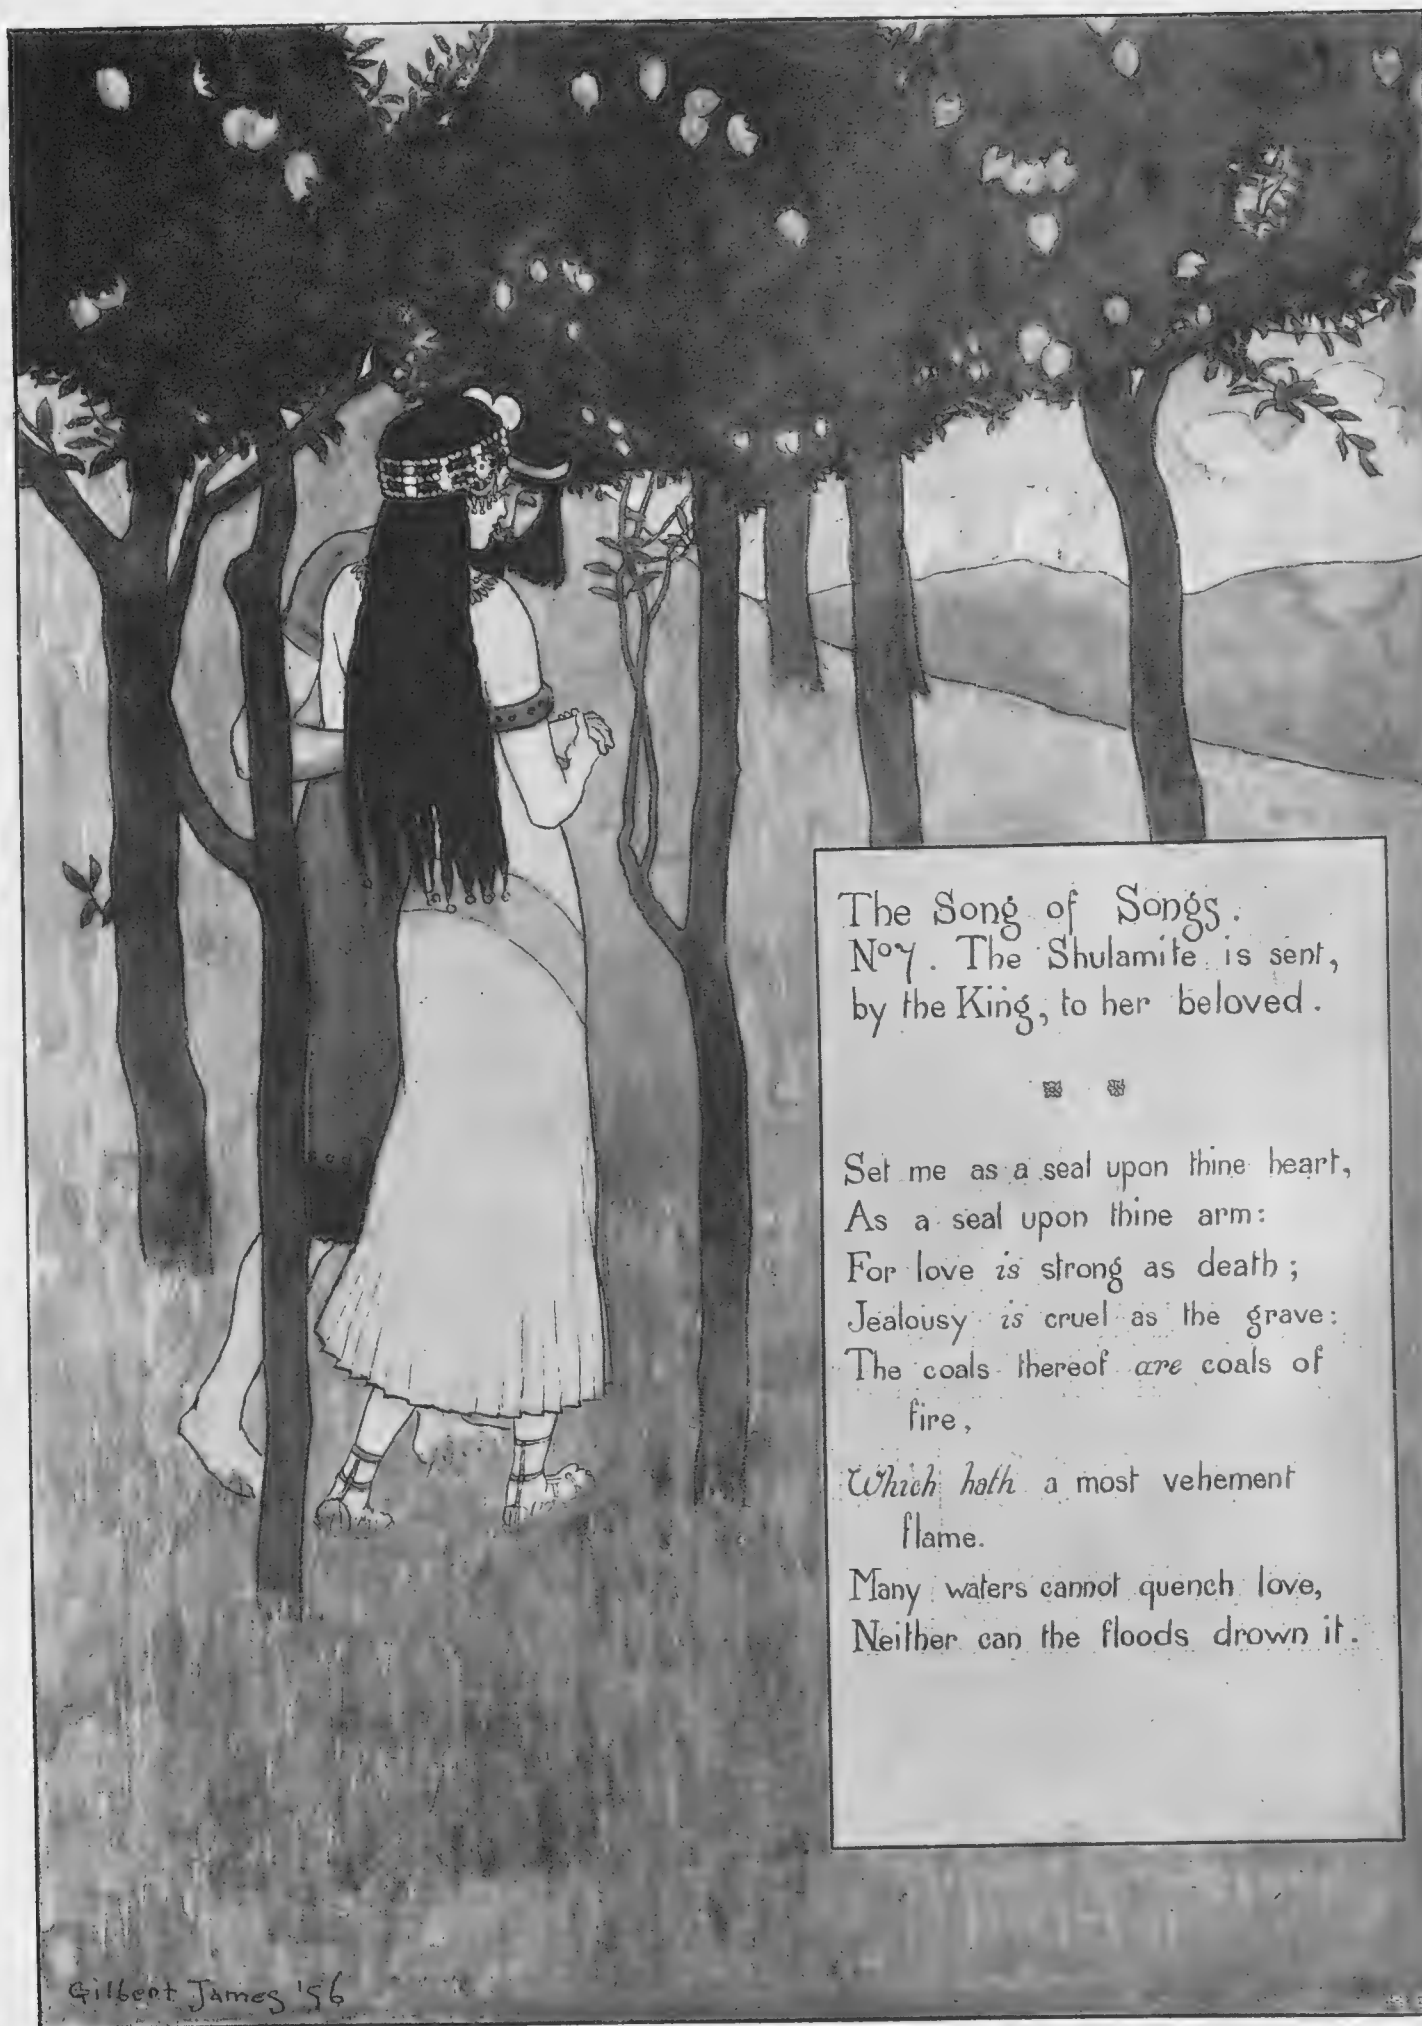 The Song of Songs.
No 7. The Shulamite is sent,
by the King, to her beloved.
Set me as a seal upon thine heart,
As a seal upon thine arm:
For love is strong as death;
Jealousy is cruel as the grave:
The coals thereof are coals of
fire,
Which hath a most vehement
flame.
Many waters cannot quench love,
Neither can the floods drown it.
Gilbert James '96